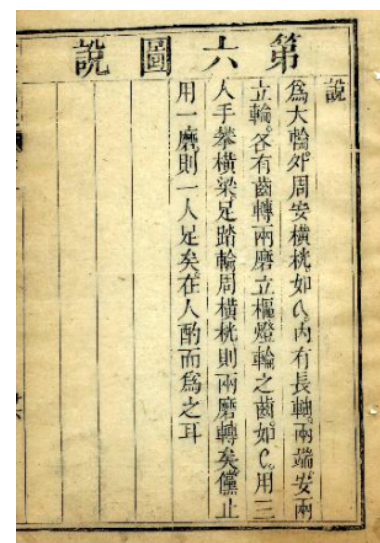 第六圖說
說
爲大輪外周安橫桄如內有長軸兩端安兩
立輪各有齒轉兩磨立樞燈輪之齒如C用三
人手攀橫梁足踏輪周橫桄則兩磨轉矣儻止
用一磨則一人足矣在人酌而爲之耳